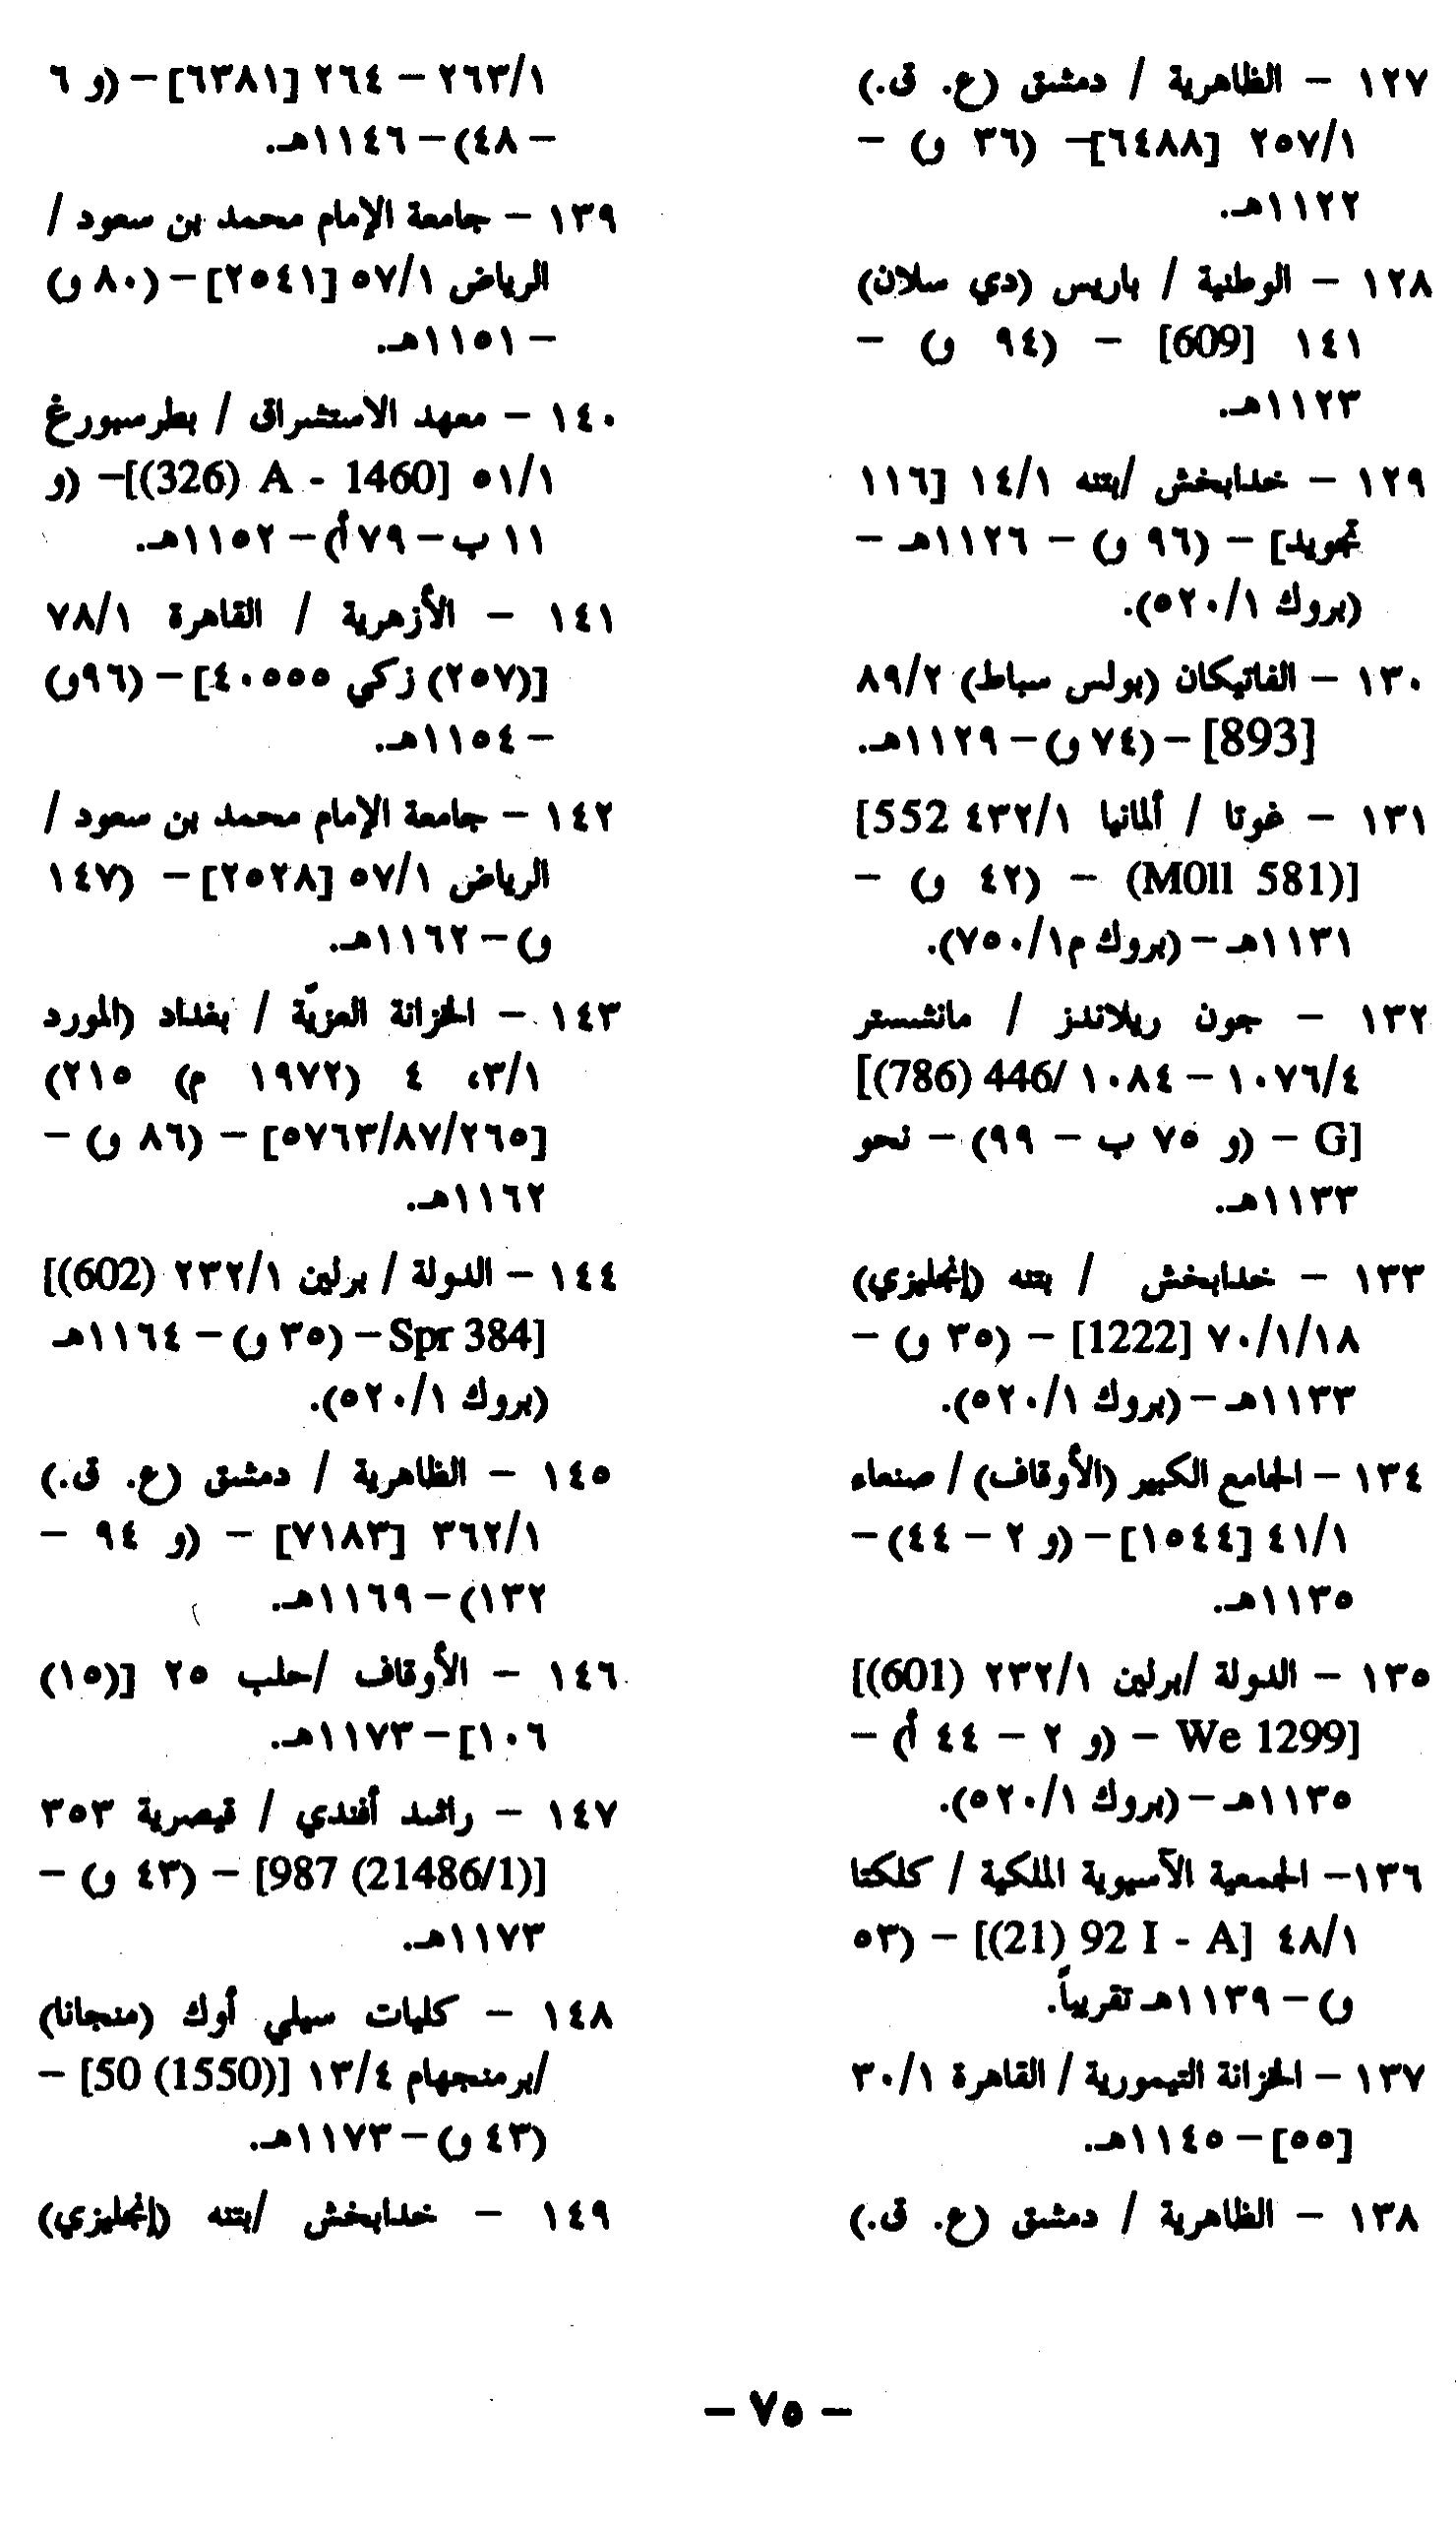 ١٢٧ – الظاهرية / دمشق (ع. ق.)
٢٥٧/١ [٦٤٨٨]– (٣٦ و) –
١١٢٢هـ.
١٢٨ – الوطنية / باريس (دي سلان)
١٤١ [609] – (٩٤ و) –
١١٢٣هـ.
١٢٩ – خدابخش /بتنه ١٤/١ [١١٦
تجويد] – (٩٦ و) – ١١٢٦هـ –
(بروك ٥٢٠/١).
١٣٠ – الفاتيكان (بولس سباط) ٨٩/٢
[893] – (٧٤ و) – ١١٢٩هـ.
١٣١ – غوتا / ألمانيا ٤٣٢/١ [552
(M0ll 581)] – (٤٢ و) –
١١٣١هـ – (بروك م٧٥٠/١).
١٣٢ – جون ريلاندز / مانشستر
١٠٧٦/٤ – ١٠٨٤ /446 (786)]
G] – (و ٧٥ ب – ٩٩) – نحو
١١٣٣هـ.
١٣٣ – خدابخش / بتنه (إنجليزي)
٧٠/١/١٨ [1222] – (٣٥ و) –
١١٣٣هـ – (بروك ٥٢٠/١).
١٣٤ – الجامع الكبير (الأوقاف) / صنعاء
٤١/١ [١٥٤٤] – (و ٢ – ٤٤) –
١١٣٥هـ.
١٣٥ – الدولة /برلين ٢٣٢/١ (601)]
We 1299] – (و ٢ – ٤٤ أ) –
١١٣٥هـ – (بروك ٥٢٠/١).
١٣٦– الجمعية الآسيوية الملكية / كلكتا
٤٨/١ [(21) 92 I - A] – (٥٣
و) – ١١٣٩هـ تقريباً.
١٣٧ – الخزانة التيمورية / القاهرة ٣٠/١
[٥٥] – ١١٤٥هـ.
١٣٨ – الظاهرية / دمشق (ع. ق.)
٢٦٣/١ – ٢٦٤ [٦٣٨١] – (و ٦
– ٤٨) – ١١٤٦هـ.
١٣٩ – جامعة الإمام محمد بن سعود /
الرياض ٥٧/١ [٢٥٤١] – (٨٠ و)
– ١١٥١هـ.
١٤٠ – معهد الاستشراق / بطرسبورغ
٥١/١ [(326) A - 1460]– (و
١١ ب – ٧٩ أ) – ١١٥٢هـ.
١٤١ – الأزهرية / القاهرة ٧٨/١
[(٢٥٧) زكي ٤٠٥٥٥] – (٩٦و)
– ١١٥٤هـ.
١٤٢ – جامعة الإمام محمد بن سعود /
الرياض ٥٧/١ [٢٥٢٨] – (١٤٧
و) – ١١٦٢هـ.
١٤٣ – الخزانة العزيّة / بغداد (المورد
٣/١، ٤ (١٩٧٢ م) ٢١٥)
[٥٧٦٣/٨٧/٢٦٥] – (٨٦ و) –
١١٦٢هـ.
١٤٤ – الدولة / برلين ٢٣٢/١ (602)]
Spr 384] – (٣٥ و) – ١١٦٤هـ
(بروك ٥٢٠/١).
١٤٥ – الظاهرية / دمشق (ع. ق.)
٣٦٢/١ [٧١٨٣] – (و ٩٤ –
١٣٢) – ١١٦٩هـ.
١٤٦ – الأوقاف /حلب ٢٥ [(١٥)
١٠٦] – ١١٧٣هـ.
١٤٧ – راشد أفندي / قيصرية ٣٥٣
[987 (21486/1)] – (٤٣ و) –
١١٧٣هـ.
١٤٨ – كليات سيلي أوك (منجانا)
/برمنجهام ١٣/٤ [50 (1550)] –
(٤٣ و) – ١١٧٣هـ.
١٤٩ – خدابخش /بتنه (إنجليزي)
– ٧٥ –